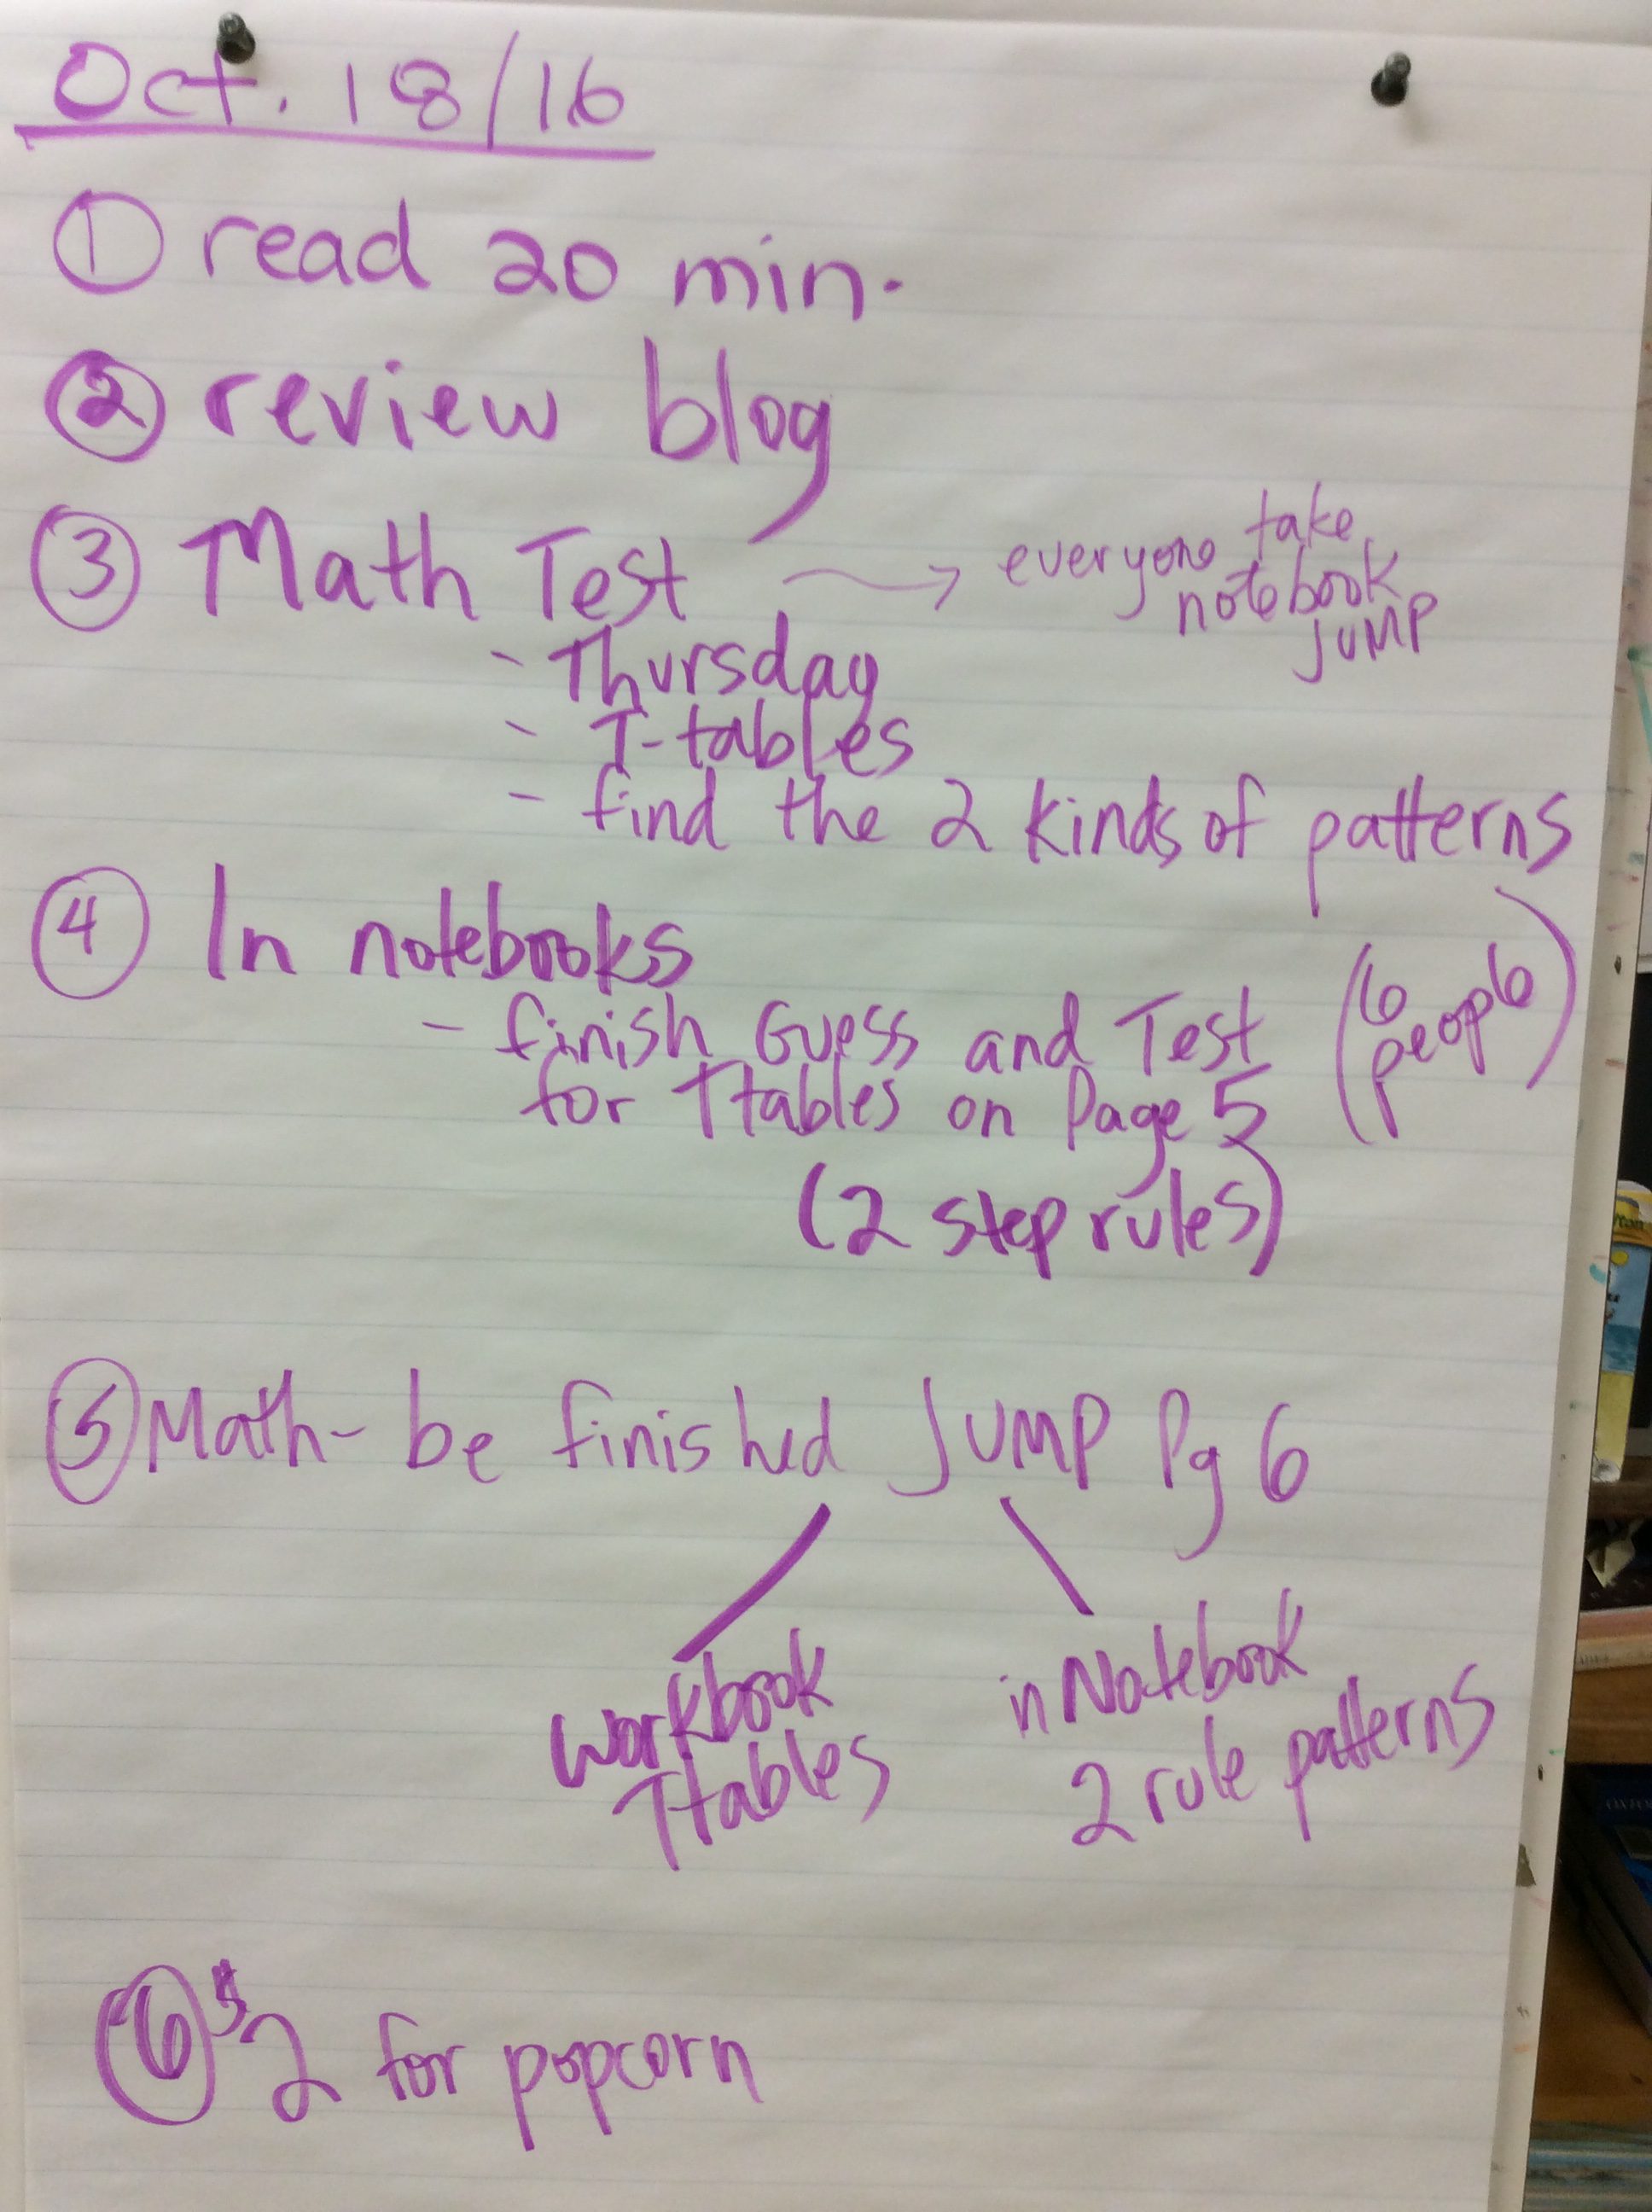 Oct. 18/16
① read 20 min.
② review blog
③ Math Test → everyone take notebook JUMP
- Thursday
- T-tables
- find the 2 kinds of patterns
④ In notebooks
- finish Guess and Test (6 people)
for Ttables on Page 5
(2 step rules)
⑤ Math - be finished JUMP Pg 6
workbook
Ttables
in Notebook
2 rule patterns
⑥ $2 for popcorn